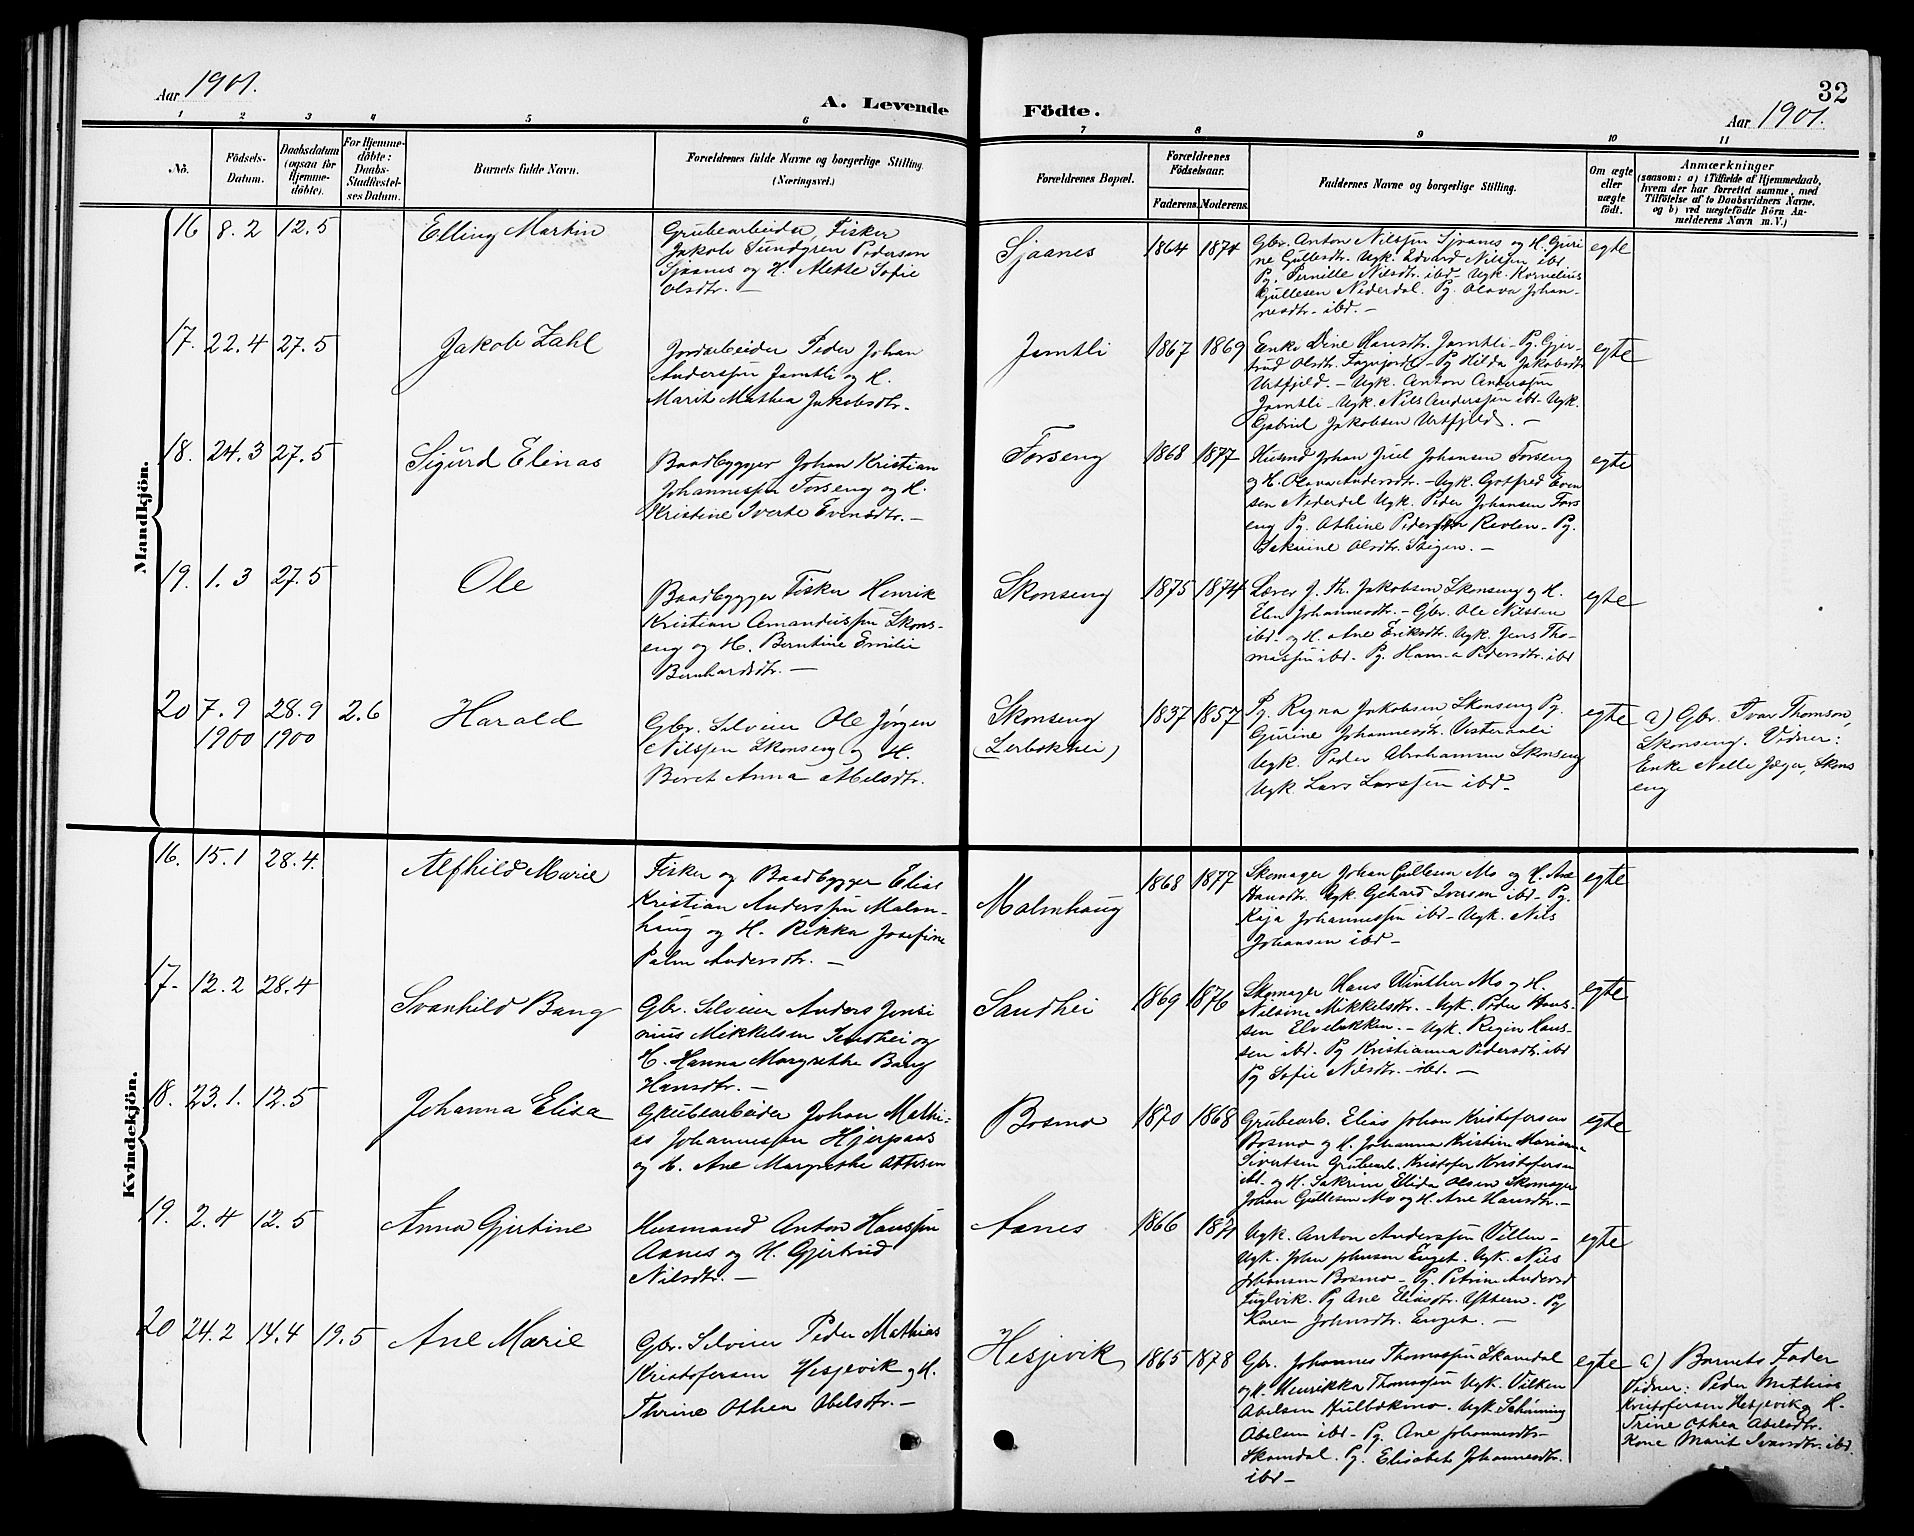 Aar 1901.
A. Levende
Födte.
32
Aar 1901.
1 2 3 4 5 6 7 8 9 10 11
No.
Födsels-Datum.
Daabsdatum (ogsaa for Hjemme-döbte).
For Hjemme-döbte: Daabs-Stadfæstel-ses Datum.
Barnets fulde Navn.
Forældrenes fulde Navne og borgerlige Stilling.
(Næringsvei.)
Forældrenes Bopæl.
Forældrenes Födselsaar.
Faderens. Moderens.
Faddernes Navne og borgerlige Stilling.
Om ægte eller uægte født.
Anmærkninger
(saasom: a) i Tilfælde af Hjemmedaab,
hvem der har forrettet samme, med
Tilføielse af to Daabsvidners Navne.
og b) ved uægtefödte Börn An-
melderens Navn m. V.)
Mandkjön.
16 8.2 12.5
Elling Martin
Grubearbeider, Fisker
Jakob Sundgren Pederson
Sjaanes og H. Mette Sofie
Olsdtr. –
Sjaanes
1864 1874
Gbr. Anton Nilssen Sjaanes og H. Guri-
ne Gullesdtr. Ugk. Edvard Nilssen ibd.
Pg. Pernille Nilsdtr. ibd – Ugk. Kornelius
Gullesen Nederdal. Pg. Olava Johan-
nesdtr. ibd. –
egte
17. 22.4 27.5
Jakob Zahl
Jordarbeider Peder Johan
Anderssen Jamtli og H.
Marit Mathea Jakobsdtr.
Jamtli
1867 1869
Enke Dine Hansdtr. Jamtli – Pg. Gjer-
trud Olsdtr. Fagerjord – Pg. Hilda Jakobsdtr.
Urtfjeld. – Ugk. Anton Anderssen
Jamtli – Ugk. Nils Anderssen ibd – Ugk.
Gabriel Jakobsen Urtfjeld. –
egte
18. 24.3 27.5
Sigurd Elinas
Baadbygger Johan Kristian
Johannessen Forseng og H.
Kristine Sverte Evensdtr. –
Forseng
1868 1877
Husmd Johan Juel Johansen Forseng
og H. Olava Andersdtr. – Ugk. Gotfred Even
sen Nederdal Ugk. Peder Johansen Fors
eng Pg. Athine Pedersdtr Revlen – Pg.
Olsdtr. Steigen. –
egte
19. 1.3 27.5
Ole
Baadbygger Fisker Henrik
Kristian Amandussen Skons-
eng og H. Berntine Emilie
Bernhardsdtr. –
Skonseng
1875 1874
Lærer J. Th. Jakobsen Skonseng og H.
Elen Johannesdtr. – Gbr. Ole Nilssen
ibd – og H. Ane Eriksdtr. Ugk. Jens Tho-
massen ibd. Pg. Hanna Pedersdtr. ibd
egte
20 7.9 28.9 2.6
1900 1900
Harald
Gbr. Selveier Ole Jørgen
Nilssen Skonseng og H.
Beret Anna Abelsdtr.
Skonseng
(Lerbekhei)
1837 1857
Pg. Regna Jakobsen Skonseng Pg.
Gurine Johannesdtr. Vesterdali
Ugk. Peder Abrahamsen Skonseng
Ugk. Lars Larssen ibd –
egte
a) Gbr. Ivar Thomson,
Skonseng. Vidner:
Enke Nelle Jæger, Skons
eng
Kvindekjön.
16. 15.1 28.4.
Alfhild Marie
Fisker og Baadbygger Elias
Kristian Anderssen Malm-
haug og H. Rikka Josefine
Palm Andersdtr. –
Malmhaug
1868 1877
Skomager Johan Gullesen Mo og H. Ane
Hansdtr. Ugk Gehard Iversen ibd – Pg.
Kaja Johannessen ibd – Ugk. Nils
Johansen ibd –
egte
17. 12.2 28.4
Svanhild Bang
Gbr. Selveier Anders Jensi
nius Mikkelsen Sandhei og
H. Hanna Margrethe Bang
Hansdtr. –
Sandhei
1869 1876
Skomager Hans Winther Mo og H.
Nilsine Mikkelsdtr. – Ugk. Peder Hans-
sen Elvebakken. – Ugk. Regin Hans-
sen ibd. Pg Kristianna Pedersdtr. ibd
Pg Sofie Nilsdtr. ibd. –
egte
18. 23.1. 12.5
Johanna Elisa
Grubearbeider Johan Mathi-
as Johannessen Hjerpaas
og H. Ane Margrethe Ottesen
Bosmo
1870 1868
Grubearb. Elias Johan Kristofersen
Bosmo og H. Johanna Kristine Mariane
Sivertsen Grubearb. Kristofer Kristofersen
ibd. og H. Sakrine Elida Olsen Skomager
Johan Gullesen Mo og H. Ane Hansdtr. –
egte
19. 2.4 12.5
Anna Gjertine
Husmand Anton Hanssen
Aanes og H. Gjertrud
Nilsdtr. –
Aanes
1866 1871
Ugk. Anton Anderssen Villen –
Ugk. John Johnsen Enget. Ugk. Nils
Johansen Bosmo – Pg. Petrine Andersd
Fuglvik. Pg Ane Eliasdtr. Ytteren. Pg
Karen Johnsdtr. Enget. –
egte
20 24.2 14.4 19.5
Ane Marie
Gbr. Selveier Peder Mathias
Kristofersen Hesjevik og H.
Thrine Othea Abelsdtr. –
Hesjevik
1865 1878
Gbr. Johannes Thomassen Skamdal
og H. Henrikka Thomassen Ugk. Vilken
Abelsen Hulbækmo. Ugk Schønning
Abelsen ibd – Pg. Ane Johannesdtr.
Skamdal. Pg. Elisabet Johannesdtr.
ibd –
egte
a) Barnets Fader
Vidner: Peder Mathias
Kristofersen Hesjevik og H.
Trine Othea Abelsdtr.
Kone Marit Ivarsdtr. ibd.